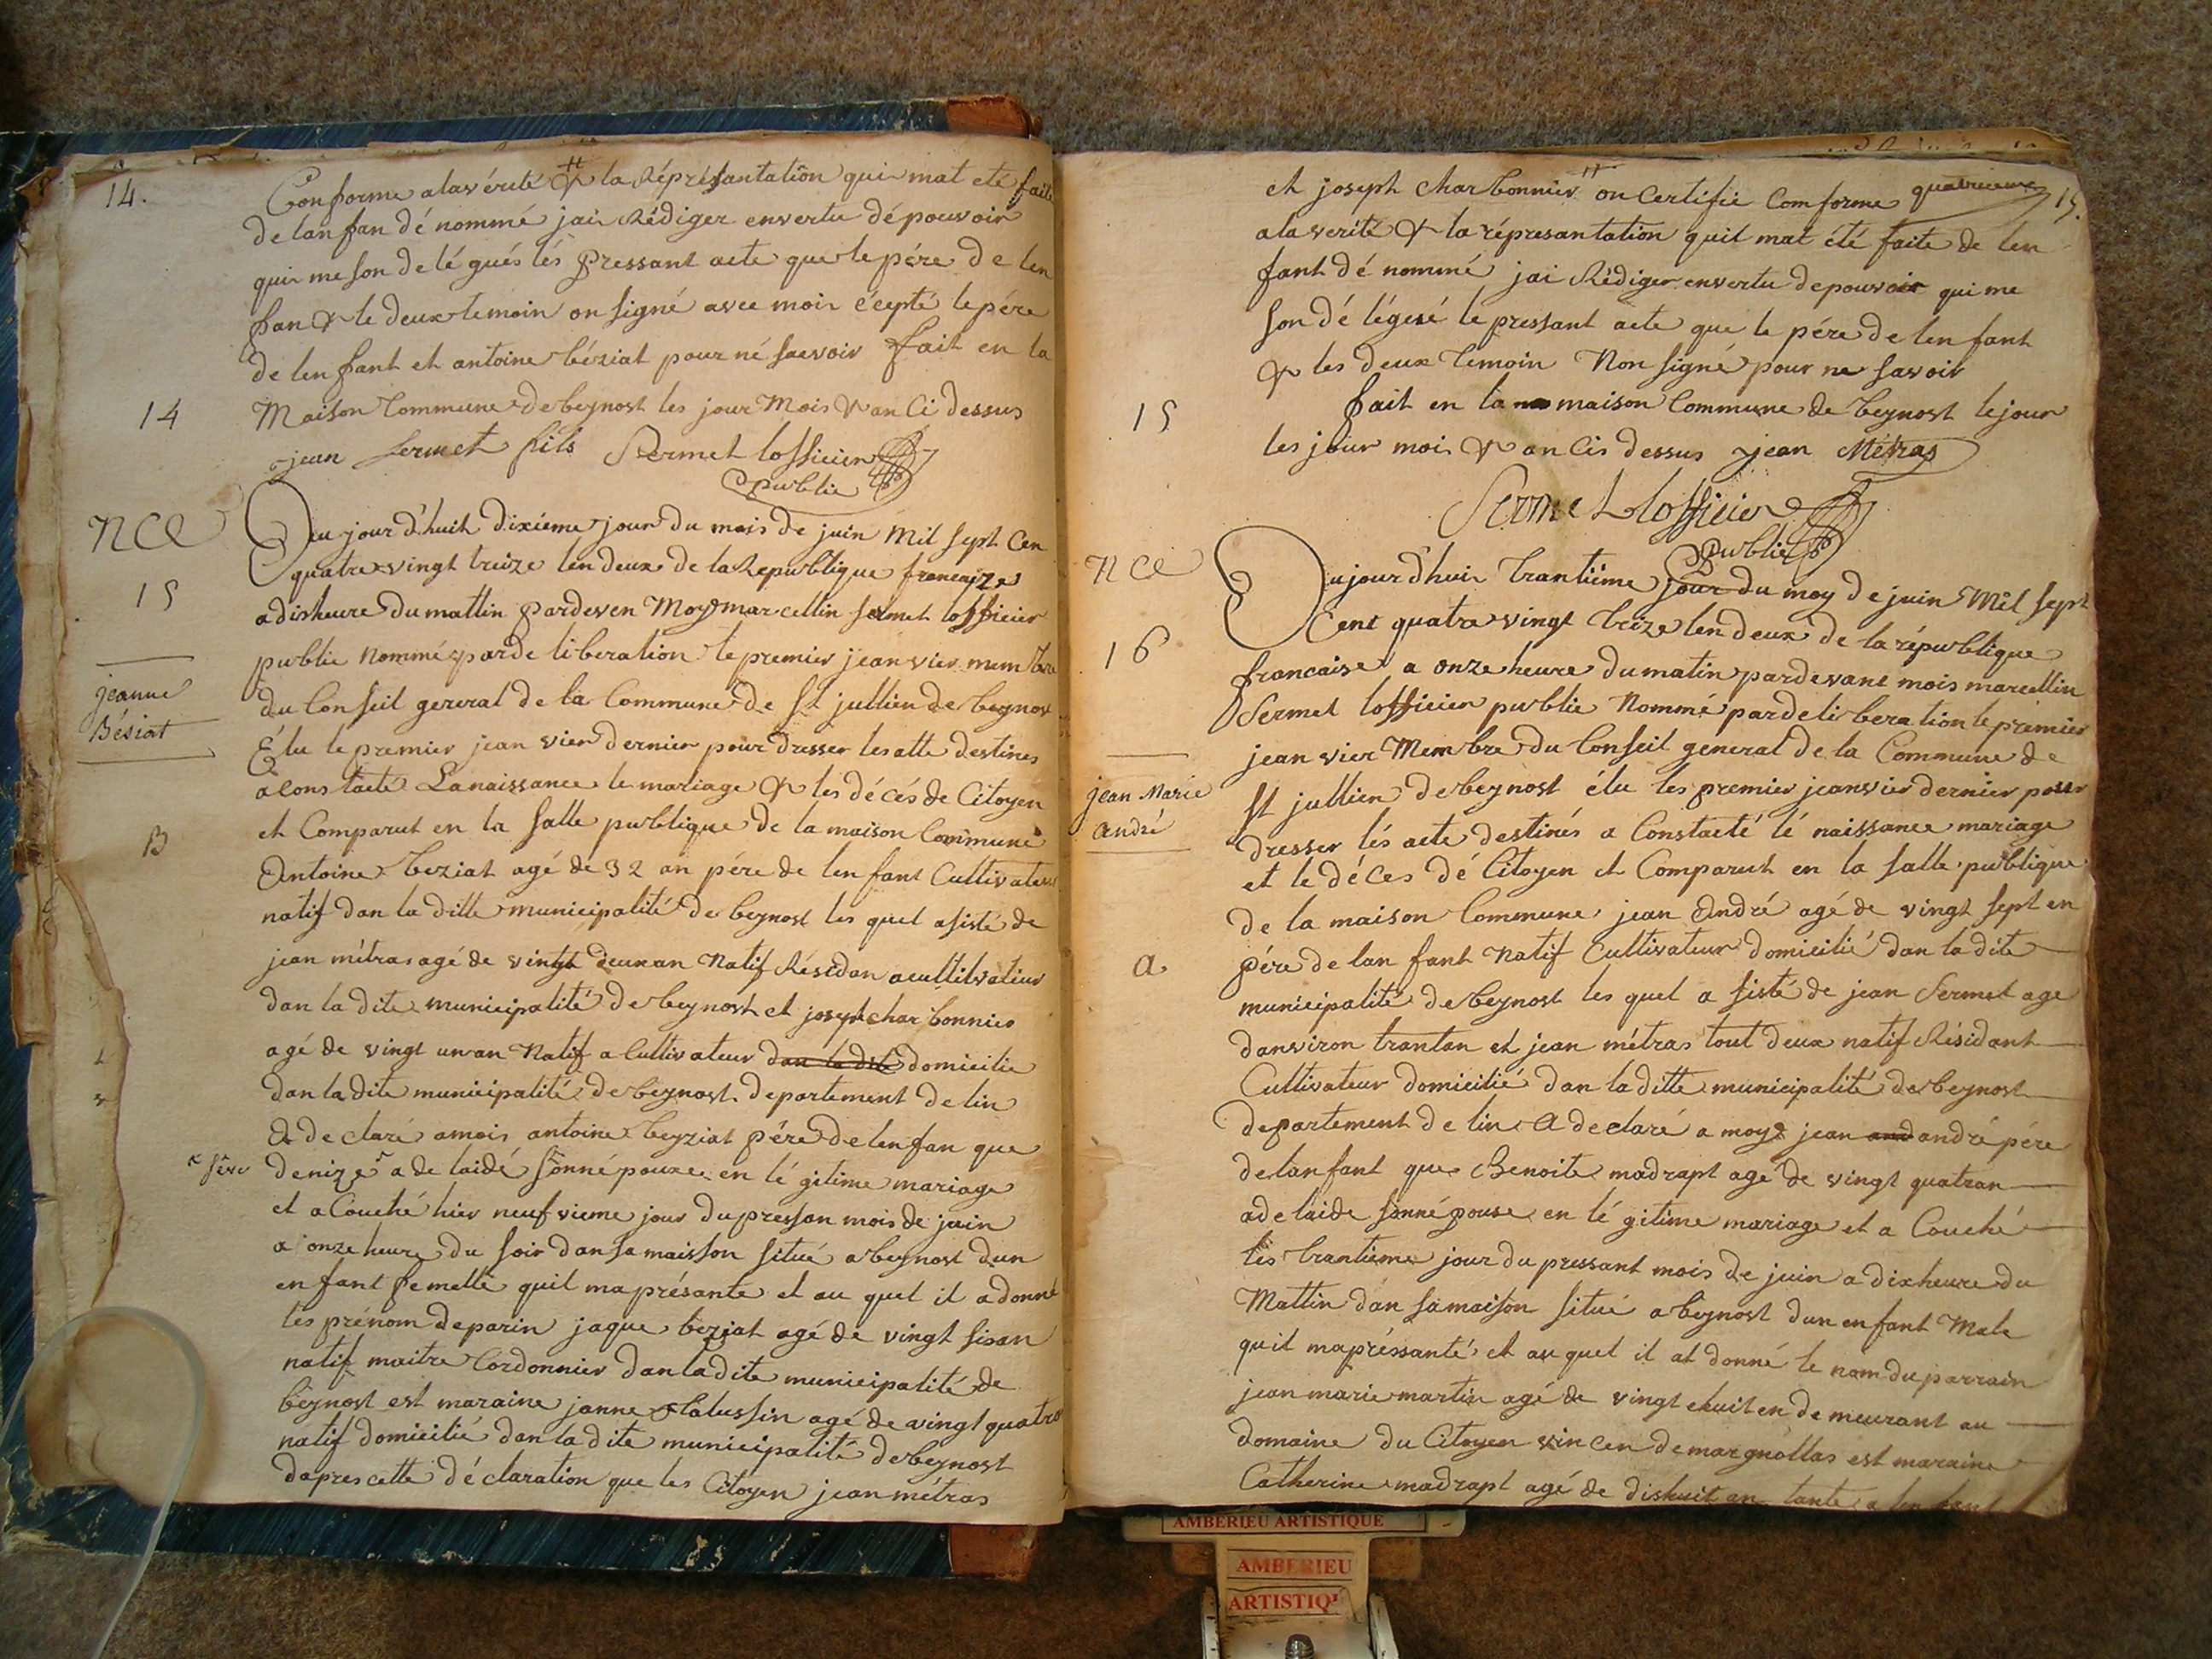 14.
Conforme alavérité & la Répréssantation qui mat eté faite
de lan fan dé nommé jai Rédiger envertu dé pouvoir
qui me son delégués lés pressant acte que le pére de len
fan & le deux temoin on signé avec moi écepté le pére
de len fant et antoine béziat pour né saevoir fait en la
14
Maison Commune de beynost les jour Mois & an Ci dessus
jean Sermet fils Sermet lofficier
publie
NCE
15
Jeanne
Bésiat
B
Aujourd'huit dixiéme jour du mois de juin Mil sept Cen
quatre vingt treize len deux de la Republique francajze
a disheure du mattin pardeven Moy marcellin sermet lofficier
public Nommé parde liberation le premier jeanvier membre
du Conseil gereral de la Commune de St jullien de beynost
Élu le premier jean vier dernier pour dresser les atte destines
a Constaeté La naissance le mariage & les décés de Citoyen
et Comparut en la salle publique de la maison Commune
Antoine beziat agé de 32 an pére de len fant Cultivateur
natif dan la ditte municipalité de beynost les quel asisté de
jean métras agé de vingt deux an Natif Résidan acultilvatieur
dan la dite municipalité de beynost et joseph char bonnier
agé de vingt un an Natif a Cultivateur dan la dite domicilie
dan la dite municipalité de beynost departement de lin
A de claré a mois antoine beyziat pére de len fan que
denize a de laidé sonné pouxe en lé gitime mariage
et a Couché hier neufvieme jour du pressan mois de juin
a onze heure du soir dan sa maisson situé a beynost dun
en fant femelle quil ma présante et au quel il a donné
les prénom de parin jaque beziat agé de vingt sisan
natif maitre Cordonnier dan la dite municipalité de
beynost est maraine janne Flalussin agé de avingt quatre
natif domicilié dan la dite municipalité de beynost
dapres cette déclaration que les Citoyen jean métras
quatrieme 15.
et joseph char bonnier on Certifié Comforme
a la verité & la répresantation quil mat été faite de len
fant dé nommé jai Rédiger envertu depouvoir qui me
son dé légené le pressant acte que le pére de len fant
& les deux temoin Non signé pour ne savoir
15
fait en la maison Commune de beynost le jour
les jour moi & an Cis dessus jean Métras
Sermet lofficier
publie
NCE
16
jean Marie
andré
a
Aujourd'hui trantiéme jour du moy de juin Mil sept
Cent quatre vingt treize len deux de la république
francaise a onze heure du matin pardevant mois marcellin
Sermet lofficier publie Nommé par deliberation le premier
jean vier Membre du Conseil general de la Commune de
St jullien de beynost élu les premier jeanvier dernier pour
dresser lés acte destinés a Constaeté lé naissance mariage
et le déces dé Citoyen et Comparut en la salle publique
de la maison Commune jean André agé de vingt sept en
pére de lan fant Natif Cultivateur domicilié dan la dite
municipalité de beynost les quel a sisté de jean Sermet age
danviron trantan et jean métras tout deux natif Résidant
Cultivateur domicilié dan la ditte municipalité de beynost
departement de lin A declaré a moy jean and andré pére
de lan fant que Benoite madrapt agé de vingt quatran
adelaide sonné pouse en lé gitime mariage et a Couché
lés trantieme jour du pressant mois de juin a dixheure du
Mattin dan sa maison situé a beynost dun en fant Male
quil ma préssanté et au quel il at donné le nom du parrain
jean marie martin agé de vingt ehuiten de meurant au
domaine du Citoyen vin cen de margnollas est maraine
Catherine madrapt agé de dishuit an tante a len fant
AMBERIEU ARTISTIQUE
AMBERIEU
ARTISTIQ